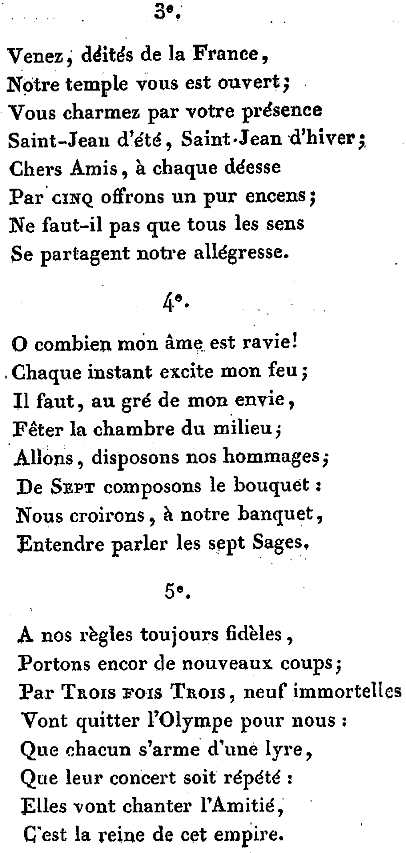 3e.
Venez, déités de la France,
Notre temple vous est ouvert;
Vous charmez par votre présence
Saint-Jean d'été, Saint-Jean d'hiver;
Chers Amis, à chaque déesse
Par CINQ offrons un pur encens;
Ne faut-il pas que tous les sens
Se partagent notre allégresse.
4e.
O combien mon âme est ravie!
Chaque instant excite mon feu;
Il faut, au gré de mon envie,
Fêter la chambre du milieu;
Allons, disposons nos hommages;
De SEPT composons le bouquet:
Nous croirons, à notre banquet,
Entendre parler les sept Sages.
5e.
A nos règles toujours fidèles,
Portons encor de nouveaux coups;
Par TROIS FOIS TROIS, neuf immortelles
Vont quitter l'Olympe pour nous:
Que chacun s'arme d'une lyre,
Que leur concert soit répété:
Elles vont chanter l'Amitié,
C'est la reine de cet empire.